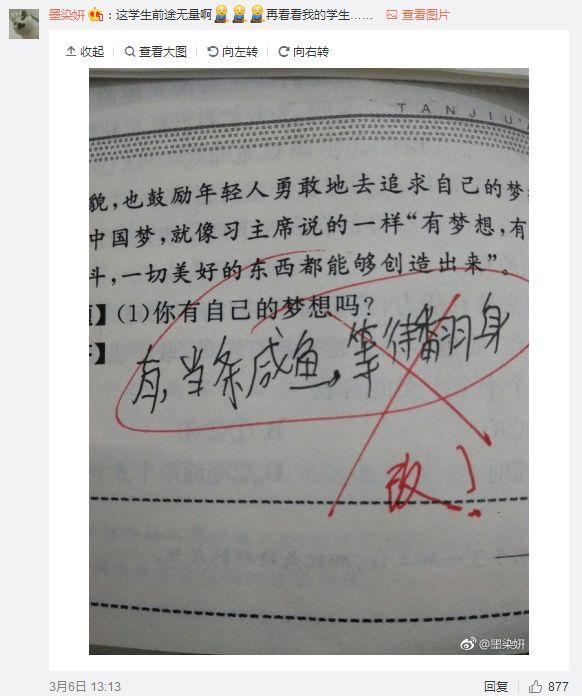 墨染妍：这学生前途无量啊再看看我的学生…… 查看图片
收起 查看大图 向左转 向右转
TANJIU
貌，也鼓励年轻人勇敢地去追求自己的梦
中国梦，就像习主席说的一样“有梦想，有
斗，一切美好的东西都能够创造出来”。
】(1)你有自己的梦想吗？
】
有，当条咸鱼，等待翻身
改！
@墨染妍
3月6日 13:13 回复 877